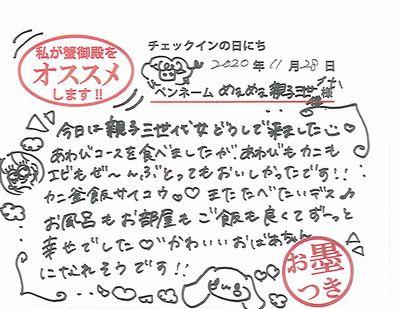 私が蟹御殿を
オススメ
します!!
チェックインの日にち
2020年11月28日
ペンネーム めぇめぇ親子三世代様
今日は親子三世代女どうしで来ました♡
あわびコースを食べましたが、あわびもカニも
エビもぜ〜〜んぶとってもおいしかったです!!
カニ釜飯サイコウ♡♡ またたべたいデス♪
お風呂もお部屋もご飯も良くてずーっと
幸せでした♡♡かわいいおばあちゃん
になれそうです!!
お墨
つき